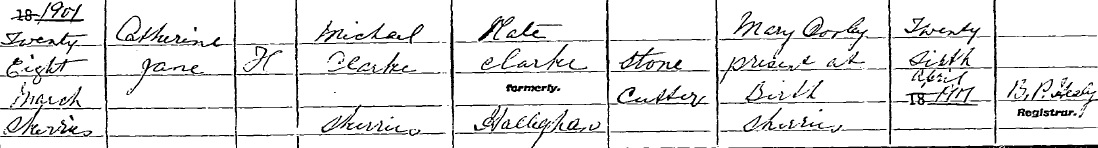 18 1901
Twenty Catherine Michael Kate Mary Twenty
Eight Jane F Clarke Clarke Stone present at Sixth
March formerly. Cutter Birth April 18 1901 B. P. Healy
Skerries Skerries Halleghan Skerries Registrar.